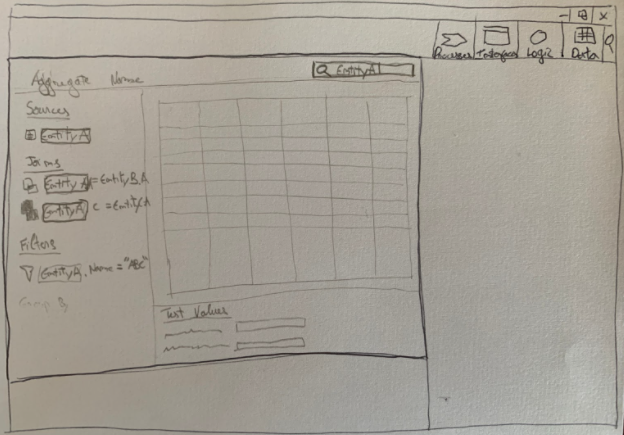 Processes Interfaces Logic Data
EntityA
Aggregate Name
Sources
Entity A
Joins
Entity A = EntityB.A
Entity A C = EntityCA
Filters
EntityA . Name = "ABC"
Group By
Test Values